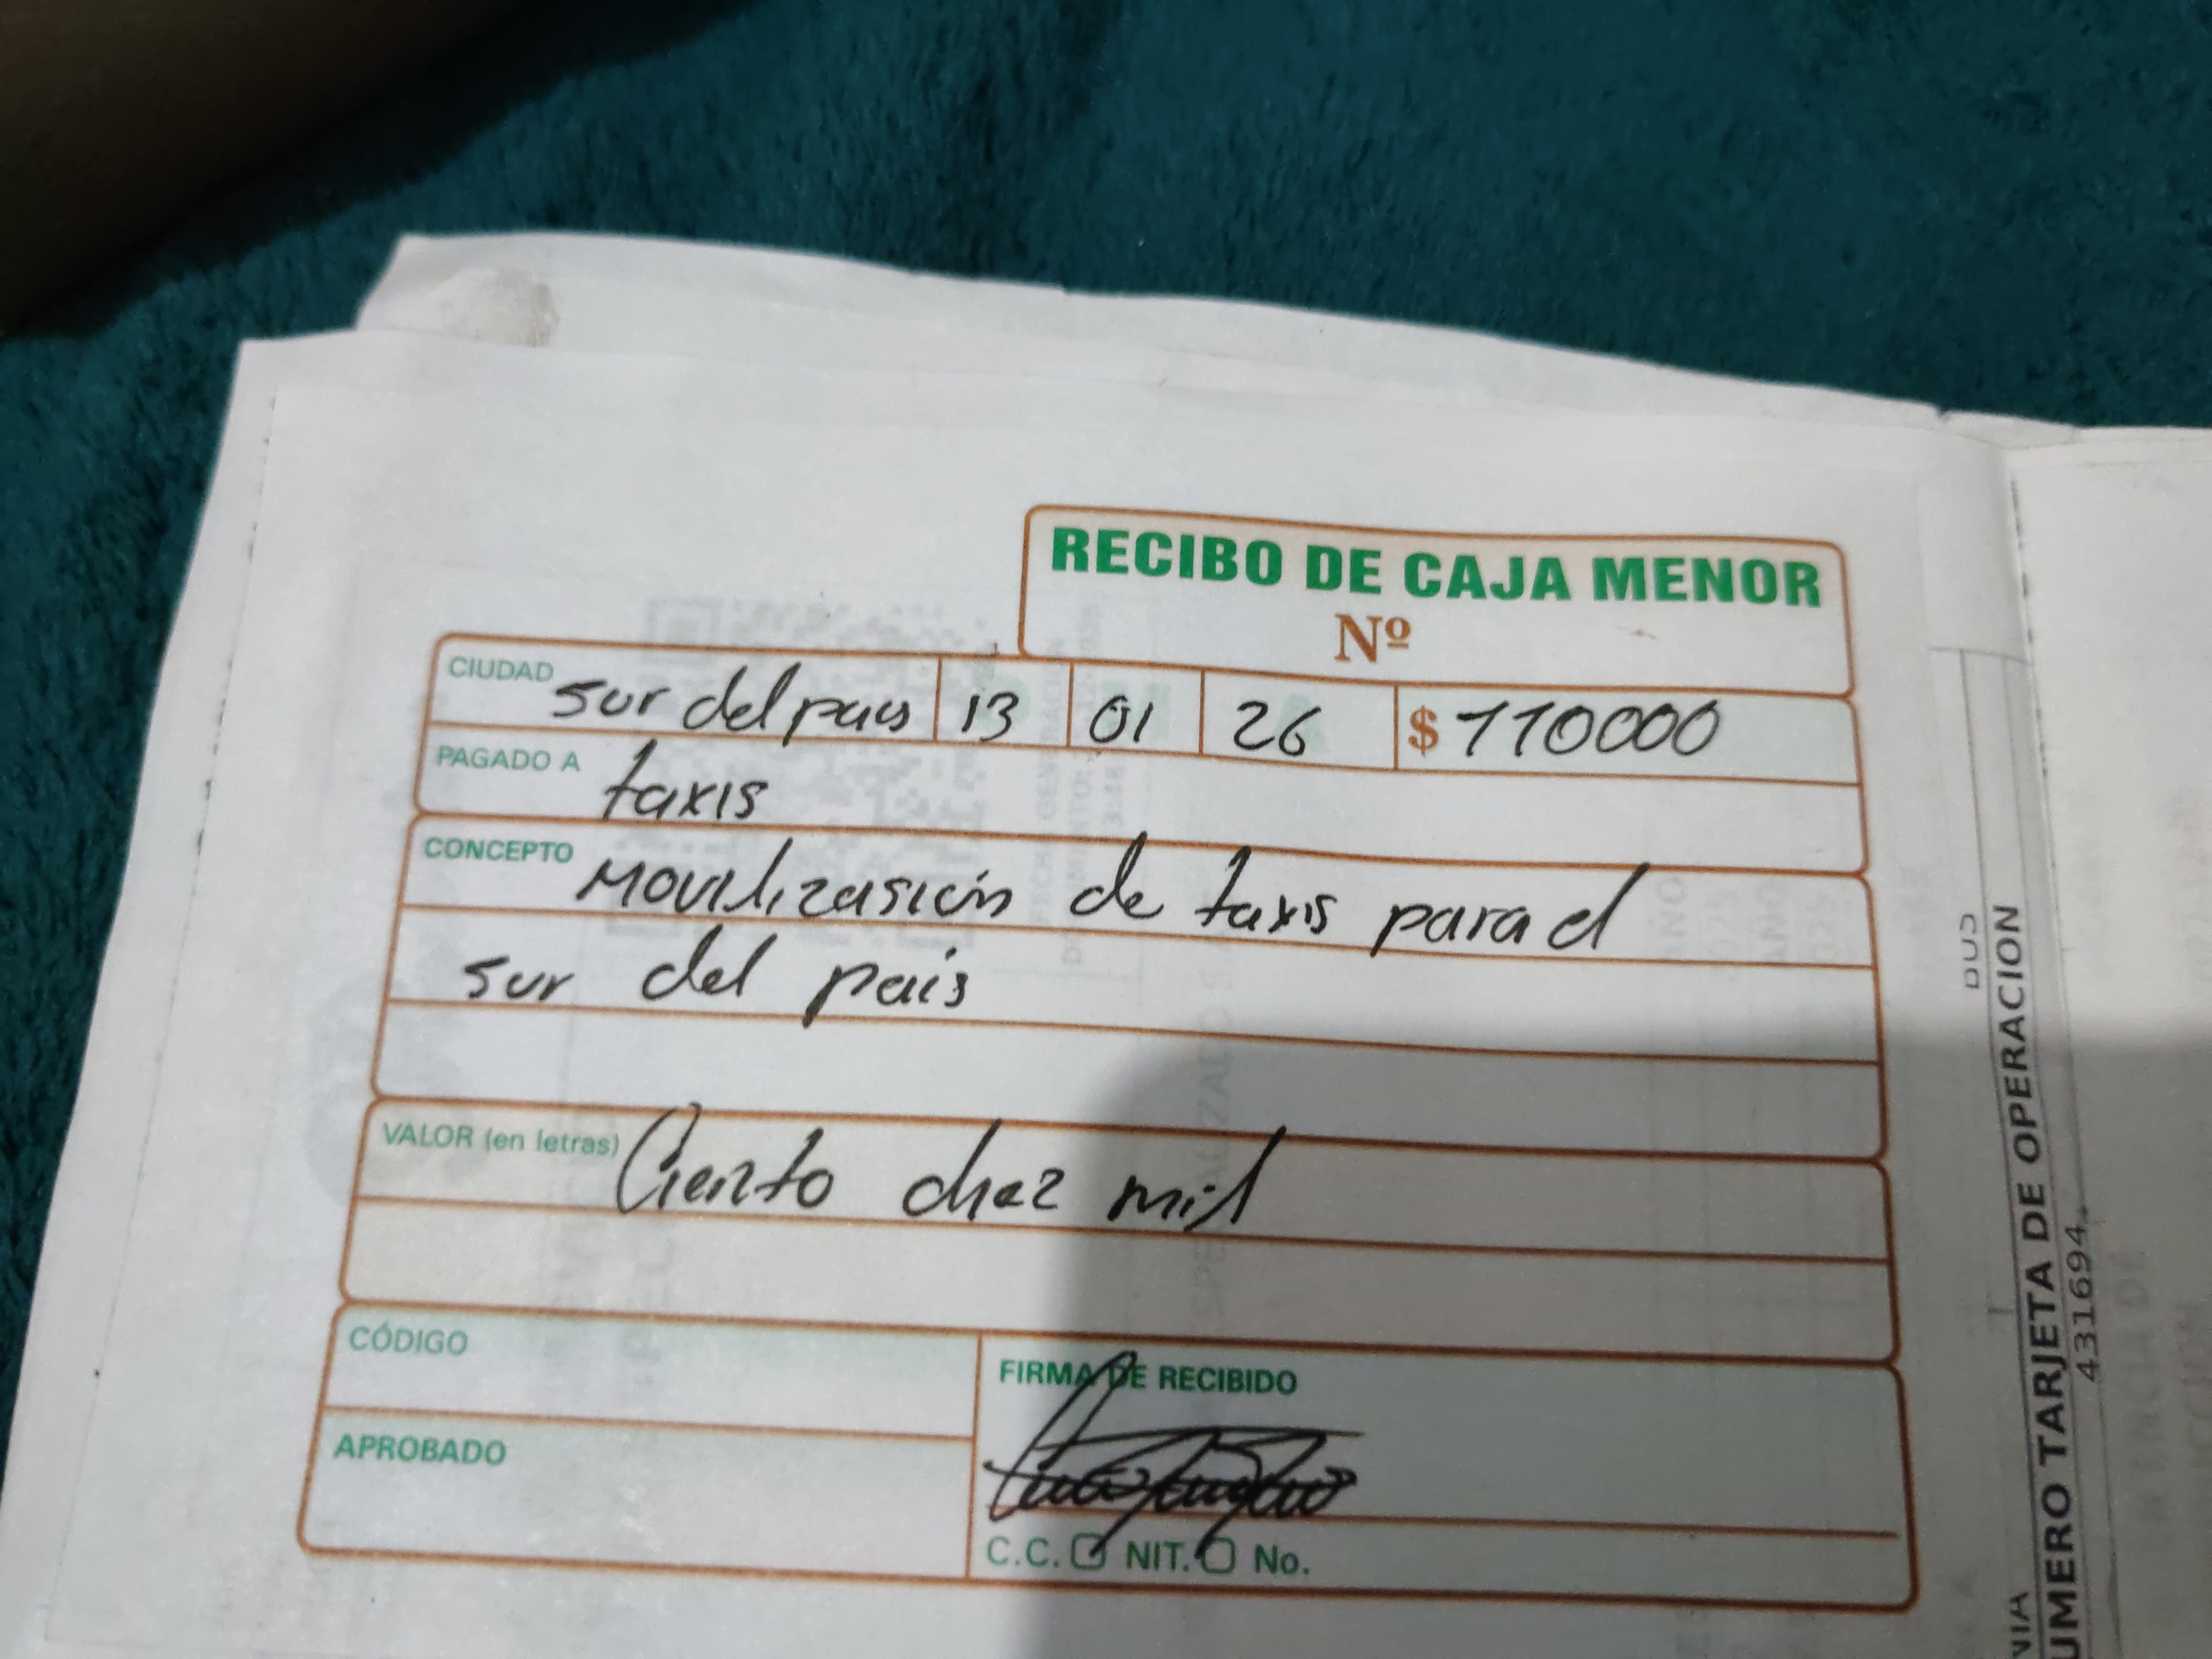 RECIBO DE CAJA MENOR
Nº
CIUDAD sur del pais 13 01 26 $ 110000
PAGADO A taxis
CONCEPTO Movilizasión de taxis para el
sur del pais
VALOR (en letras) Ciento diez mil
CÓDIGO
APROBADO
FIRMA DE RECIBIDO
C.C. NIT. No.
BUS
UMERO TARJETA DE OPERACION
431694